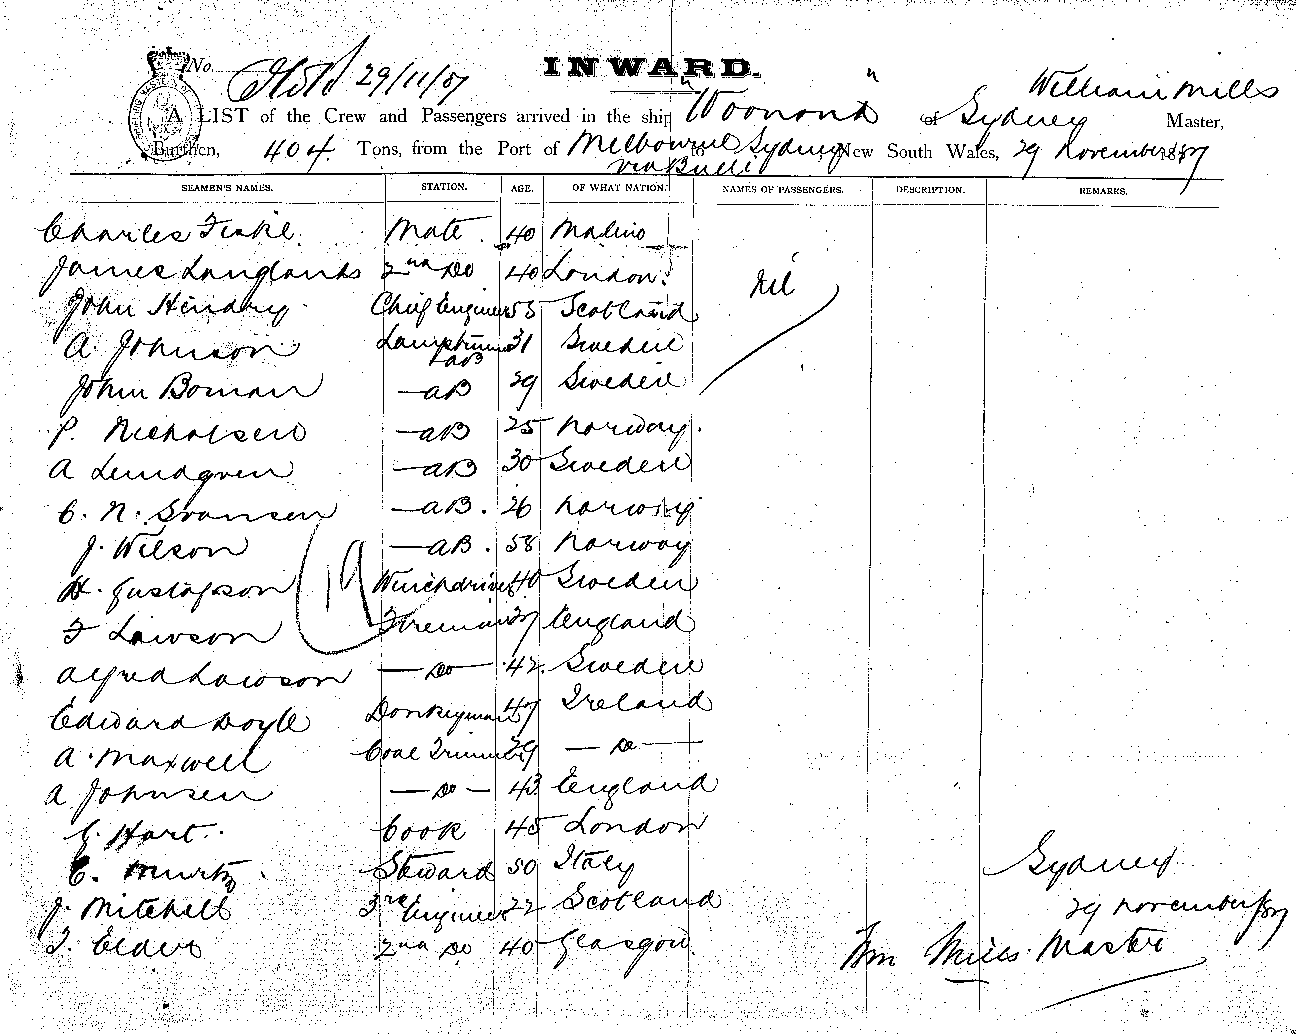 INWARD.
No. 29/11/87
A LIST of the Crew and Passengers arrived in the ship "Woonona" of Sydney William Mills Master,
Burthen, 404 Tons, from the Port of Melbourne to Sydney, New South Wales, 29 November 1887
via Bulli
SEAMEN'S NAMES. STATION. AGE. OF WHAT NATION. NAMES OF PASSENGERS. DESCRIPTION. REMARKS.
Charles Mate 40
James Langlands 2nd Do 40 London
Nil
John Hendry Chief Engineer 55 Scotland
A. Johnson Lamptrimmer 31 Sweden
+ aB
John Boman - aB 29 Sweden
P. Nicholsen - aB 25 Norway.
A Lundgren - aB 30 Sweden
C. N. Svansen - aB. 26 Norway
J. Wilson - aB. 58 Norway
19
H. Gustafson Winchdriver 40 Sweden
F Lawson Fireman 37 England
Alfred Lawson - Do - 42. Sweden
Edward Doyle Donkeyman 47 Ireland
A. Maxwell Coal Trimmer 29 - Do -
A Johnsen - Do - 43 England
G. Hart. Cook 45 London
C. Steward 50 Italy
Sydney
J. Mitchell 3rd Engineer 22 Scotland
29 November/87
T. Elder 2nd Do 40 Glasgow
Wm Mills. Master